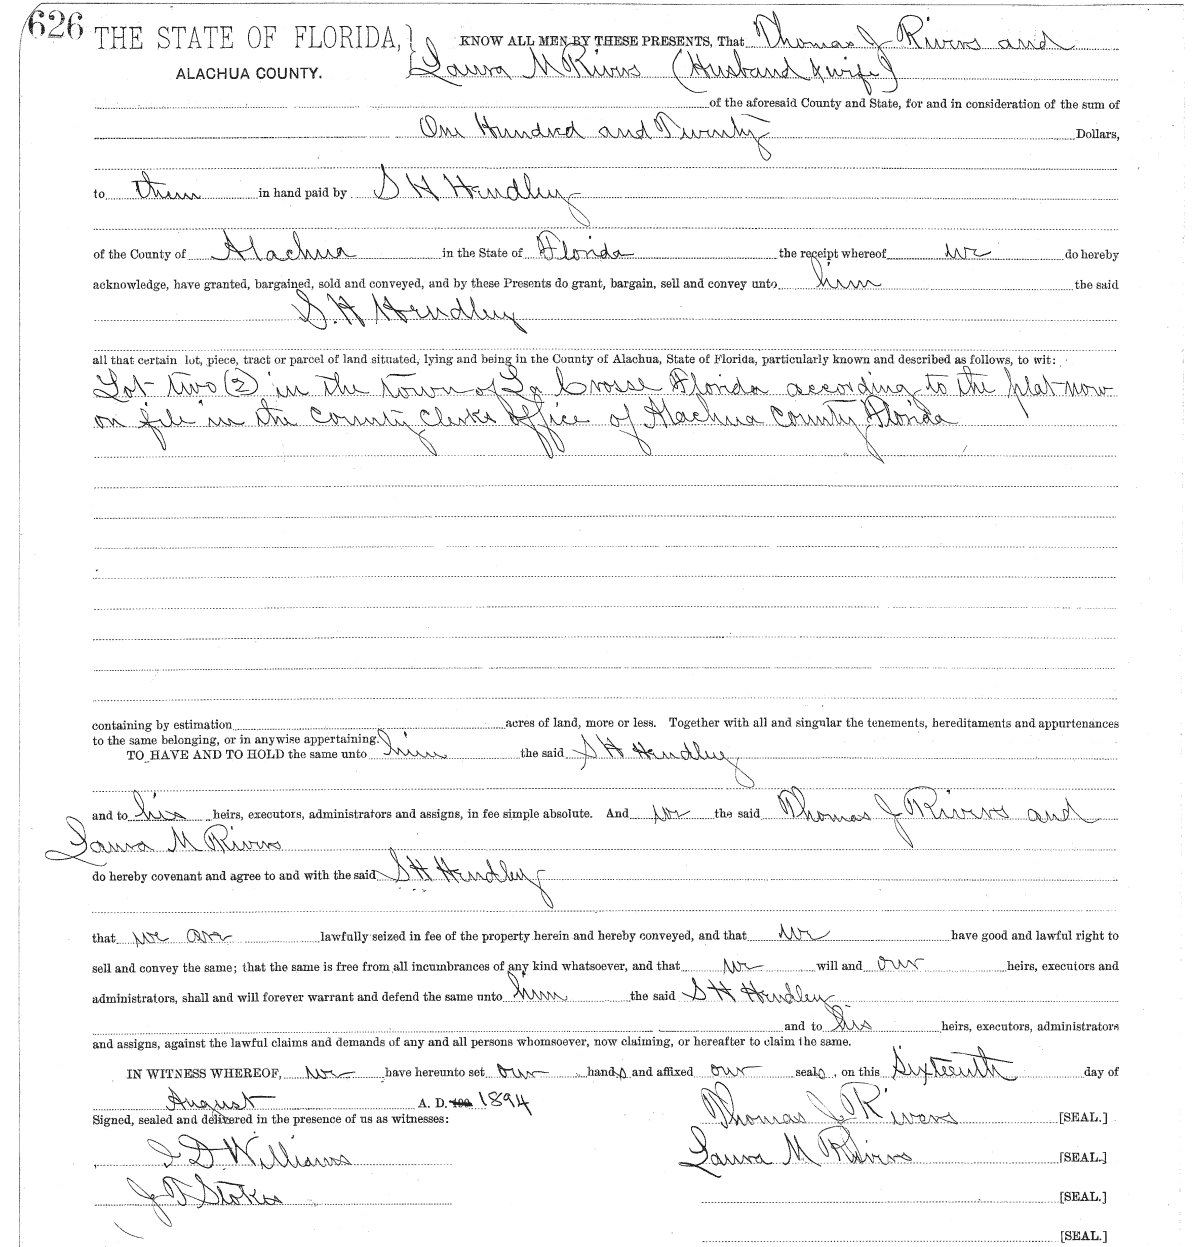 626 THE STATE OF FLORIDA, } KNOW ALL MEN BY THESE PRESENTS, That Thomas J Rivers and
ALACHUA COUNTY. Laura M Rivers (Husband & wife)
of the aforesaid County and State, for and in consideration of the sum of
One Hundred and Twenty Dollars,
to them in hand paid by S H Hendley
of the County of Alachua in the State of Florida the receipt whereof we do hereby
acknowledge, have granted, bargained, sold and conveyed, and by these Presents do grant, bargain, sell and convey unto him the said
S. H Hendley
all that certain lot, piece, tract or parcel of land situated, lying and being in the County of Alachua, State of Florida, particularly known and described as follows, to wit:
Lot two (2) in the town of La Crosse Florida according to the plat now
on file in the County Clerks Office of Alachua County Florida
containing by estimation acres of land, more or less. Together with all and singular the tenements, hereditaments and appurtenances
to the same belonging, or in anywise appertaining.
TO HAVE AND TO HOLD the same unto him the said S H Hendley
and to his heirs, executors, administrators and assigns, in fee simple absolute. And we the said Thomas J Rivers and
Laura M Rivers
do hereby covenant and agree to and with the said S H Hendley
that we are lawfully seized in fee of the property herein and hereby conveyed, and that we have good and lawful right to
sell and convey the same; that the same is free from all incumbrances of any kind whatsoever, and that we will and our heirs, executors and
administrators, shall and will forever warrant and defend the same unto him the said S H Hendley
and to his heirs, executors, administrators
and assigns, against the lawful claims and demands of any and all persons whomsoever, now claiming, or hereafter to claim the same.
IN WITNESS WHEREOF, we have hereunto set our hands and affixed our seals, on this Sixteenth day of
August A. D. 1894
Signed, sealed and delivered in the presence of us as witnesses: Thomas J Rivers [SEAL.]
J D Williams Laura M Rivers [SEAL.]
J T Stokes [SEAL.]
[SEAL.]